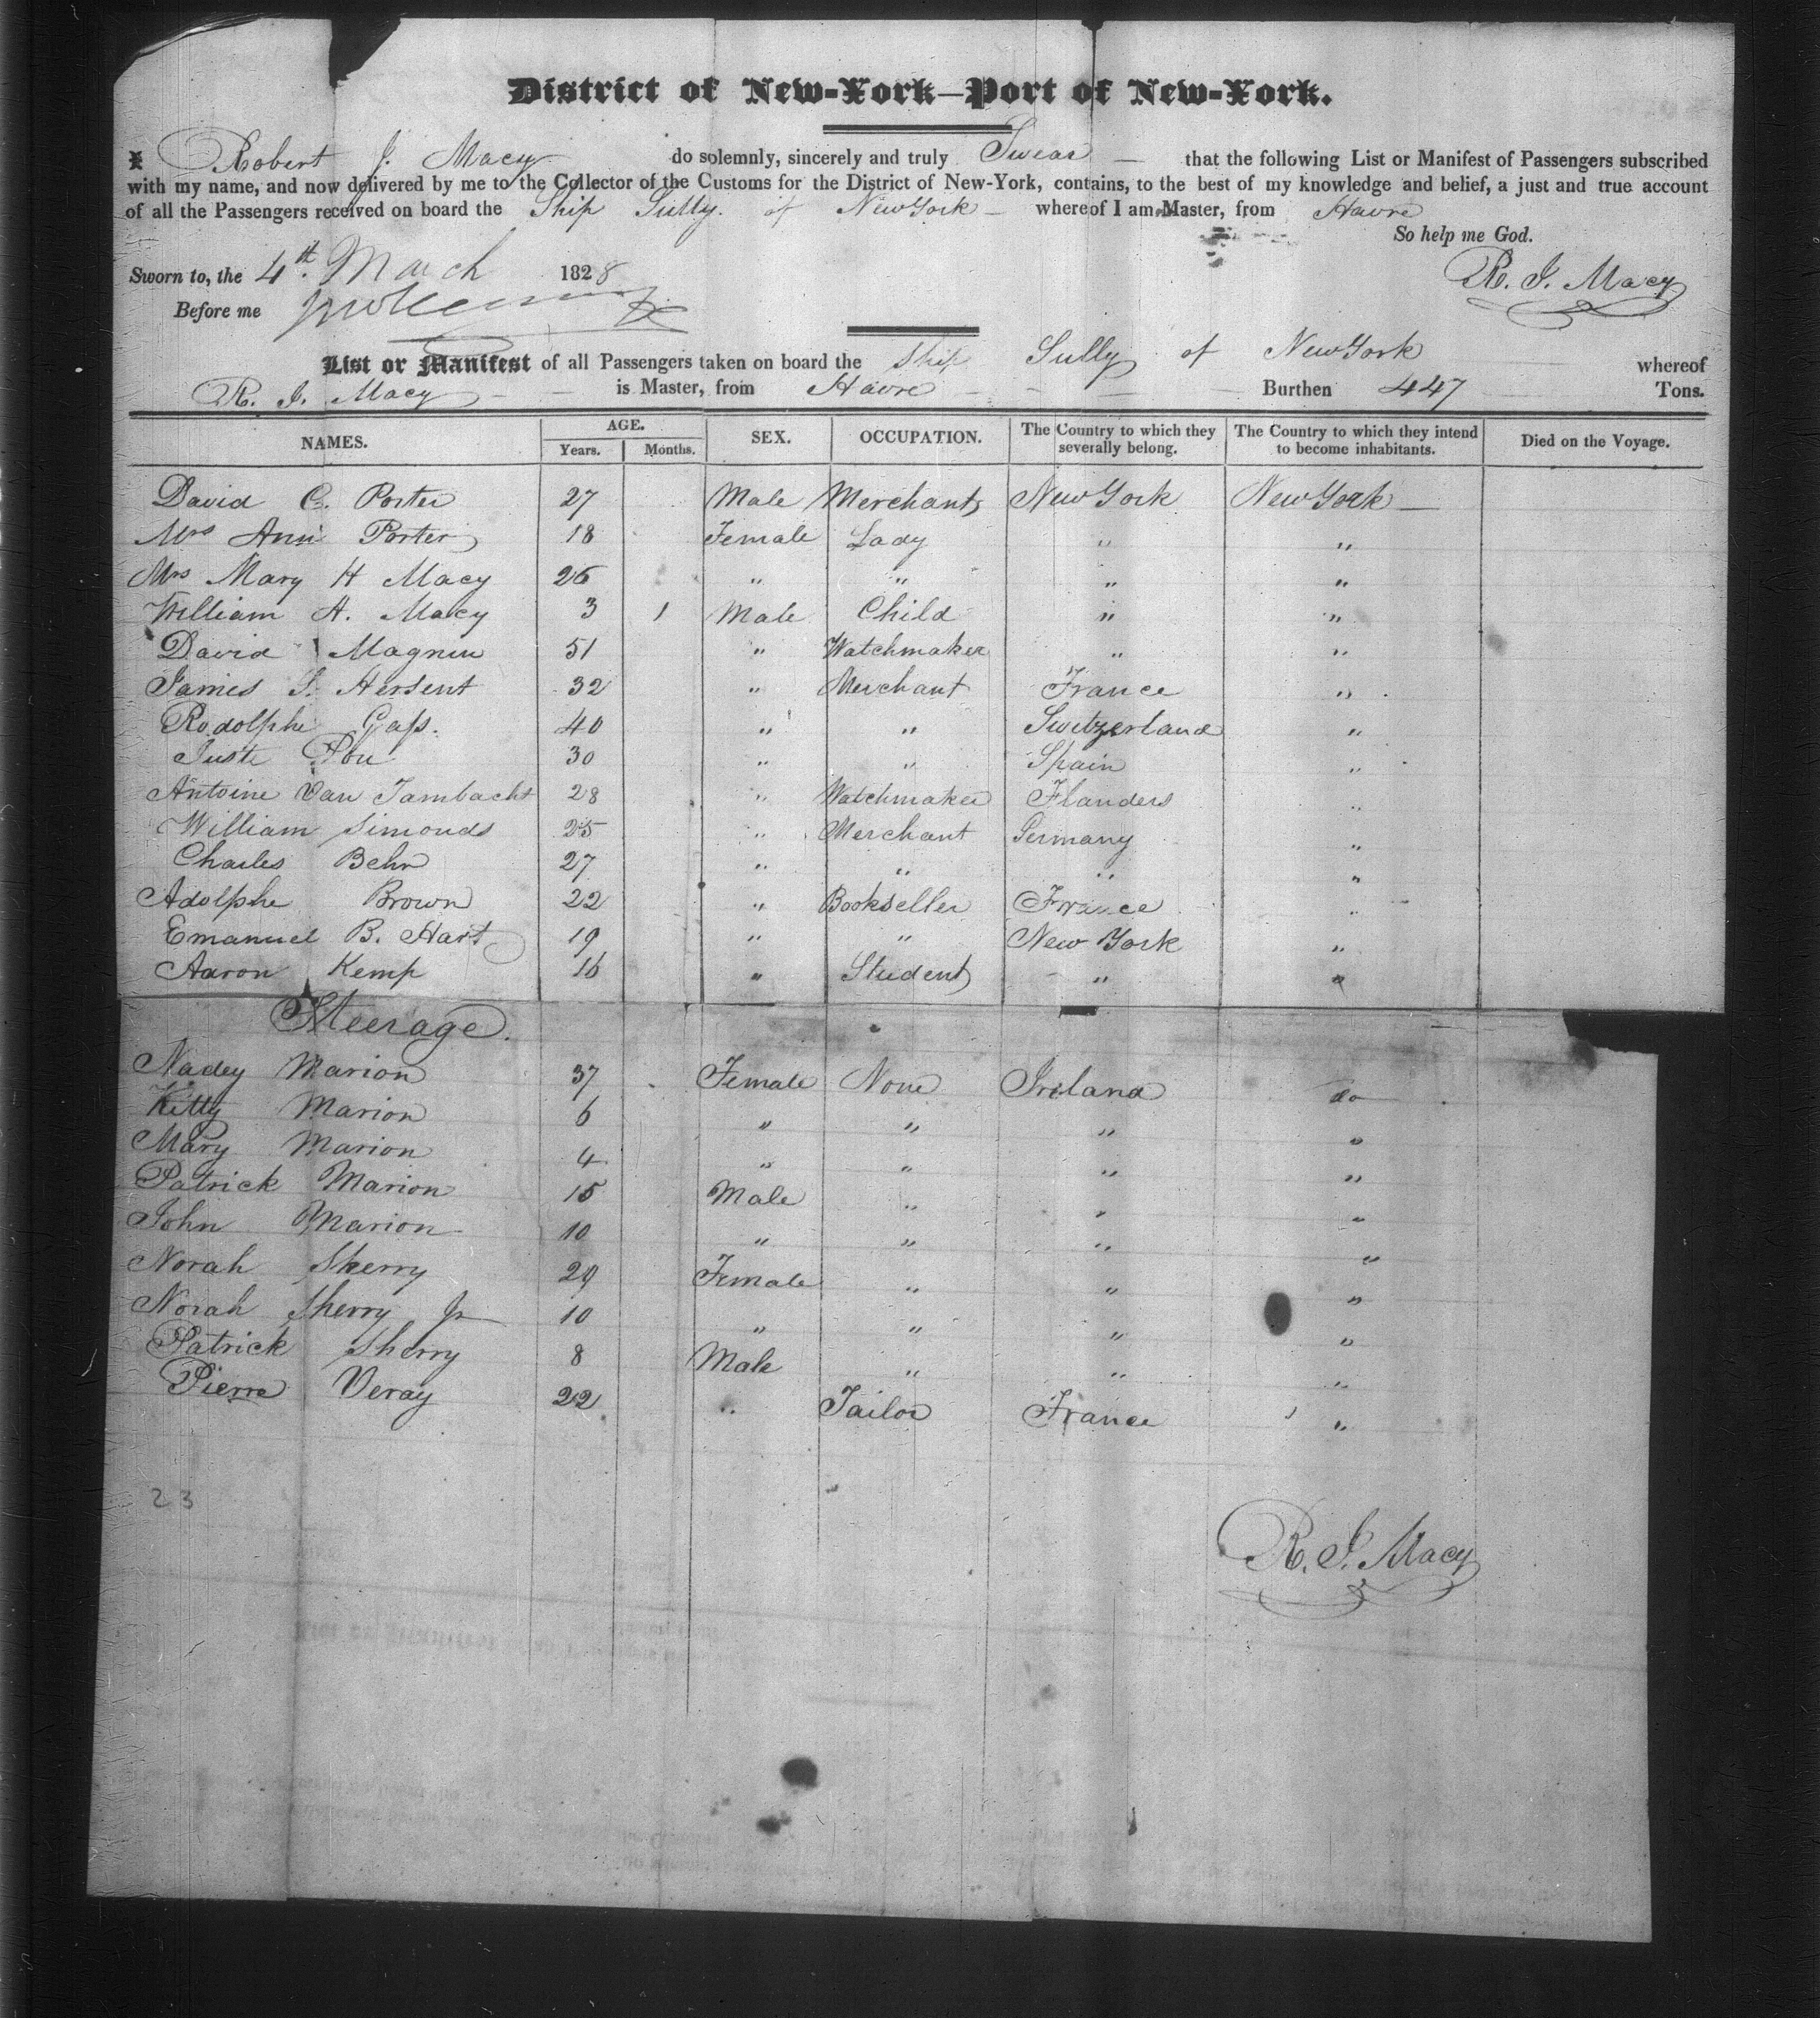 District of New-York—Port of New-York.
I Robert J. Macy do solemnly, sincerely and truly Swear — that the following List or Manifest of Passengers subscribed
with my name, and now delivered by me to the Collector of the Customs for the District of New-York, contains, to the best of my knowledge and belief, a just and true account
of all the Passengers received on board the Ship Sully. of New York — whereof I am Master, from Havre
So help me God.
Sworn to, the 4th. March 1828 R. J. Macy
Before me
List or Manifest of all Passengers taken on board the Ship Sully of New York whereof
R. J. Macy is Master, from Havre Burthen 447 Tons.
NAMES. AGE. Years. Months. SEX. OCCUPATION. The Country to which they severally belong. The Country to which they intend to become inhabitants. Died on the Voyage.
David C. Porter 27 Male Merchant New York New York —
Mrs Ann Porter 18 Female Lady " "
Mrs Mary H Macy 26 " " " "
William H. Macy 3 1 Male Child " "
David Magnin 51 " Watchmaker " "
James S. Hersent 32 " Merchant France "
Rodolphe Gass. 40 " " Switzerland "
Juste Pou 30 " " Spain "
Antoine Van Tambacht 28 " Watchmaker Flanders "
William Simonds 25 " Merchant Germany "
Charles Behr 27 " " " "
Adolphe Brown 22 " Bookseller France "
Emanuel B. Hart 19 " " New York "
Aaron Kemp 16 " Student " "
Steerage.
Nadey Marion 37 Female None Ireland do
Kitty Marion 6 " " " "
Mary Marion 4 " " " "
Patrick Marion 15 Male " " "
John Marion 10 " " " "
Norah Sherry 29 Female " " "
Norah Sherry Jr 10 " " " "
Patrick Sherry 8 Male " " "
Pierre Veray 22 " Tailor France "
23
R. J. Macy